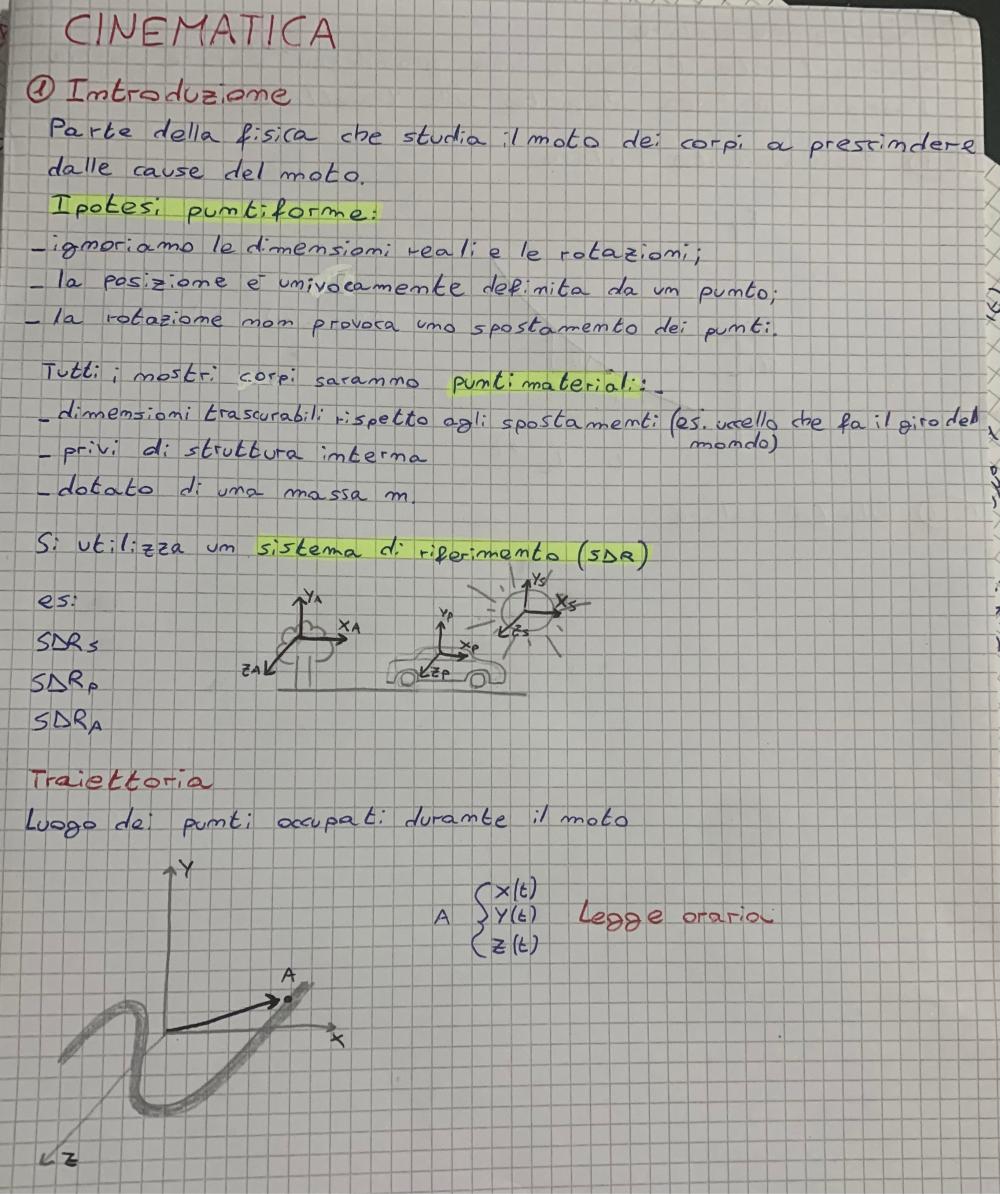 CINEMATICA
① Introduzione
Parte della fisica che studia il moto dei corpi a prescindere
dalle cause del moto.
Ipotesi puntiforme:
- ignoriamo le dimensioni reali e le rotazioni;
- la posizione è univocamente definita da un punto;
- la rotazione non provoca uno spostamento dei punti.
Tutti i nostri corpi saranno punti materiali:
- dimensioni trascurabili rispetto agli spostamenti (es. uccello che fa il giro del
mondo)
- privi di struttura interna
- dotato di una massa m.
Si utilizza un sistema di riferimento (SDR)
es:
SDRs
SDRp
SDRA
YA
XA
ZA
Yp
Xp
Zp
Ys
Xs
Zs
Traiettoria
Luogo dei punti occupati durante il moto
Y
A
X
Z
A { x(t)
Y(t) Legge oraria
z(t)